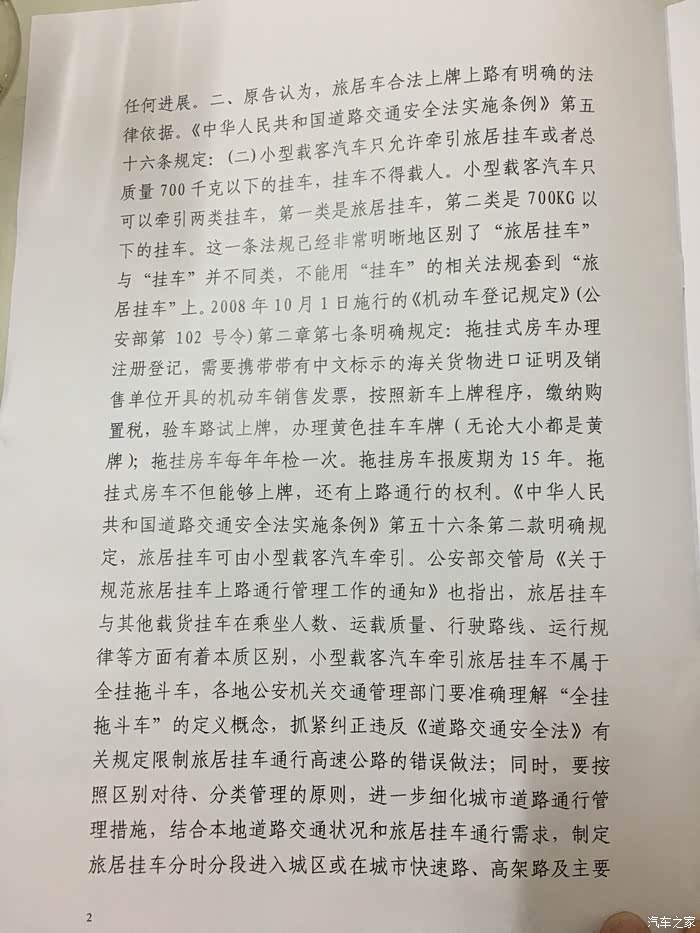 任何进展。二、原告认为，旅居车合法上牌上路有明确的法
律依据。《中华人民共和国道路交通安全法实施条例》第五
十六条规定：(二)小型载客汽车只允许牵引旅居挂车或者总
质量700千克以下的挂车，挂车不得载人。小型载客汽车只
可以牵引两类挂车，第一类是旅居挂车，第二类是700KG以
下的挂车。这一条法规已经非常明晰地区别了“旅居挂车”
与“挂车”并不同类，不能用“挂车”的相关法规套到“旅
居挂车”上。2008年10月1日施行的《机动车登记规定》(公
安部第 102 号令)第二章第七条明确规定：拖挂式房车办理
注册登记，需要携带带有中文标示的海关货物进口证明及销
售单位开具的机动车销售发票，按照新车上牌程序，缴纳购
置税，验车路试上牌，办理黄色挂车车牌（无论大小都是黄
牌)；拖挂房车每年年检一次。拖挂房车报废期为15年。拖
挂式房车不但能够上牌，还有上路通行的权利。《中华人民
共和国道路交通安全法实施条例》第五十六条第二款明确规
定，旅居挂车可由小型载客汽车牵引。公安部交管局《关于
规范旅居挂车上路通行管理工作的通知》也指出，旅居挂车
与其他载货挂车在乘坐人数、运载质量、行驶路线、运行规
律等方面有着本质区别，小型载客汽车牵引旅居挂车不属于
全挂拖斗车，各地公安机关交通管理部门要准确理解“全挂
拖斗车”的定义概念，抓紧纠正违反《道路交通安全法》有
关规定限制旅居挂车通行高速公路的错误做法；同时，要按
照区别对待、分类管理的原则，进一步细化城市道路通行管
理措施，结合本地道路交通状况和旅居挂车通行需求，制定
旅居挂车分时分段进入城区或在城市快速路、高架路及主要
2
汽车之家